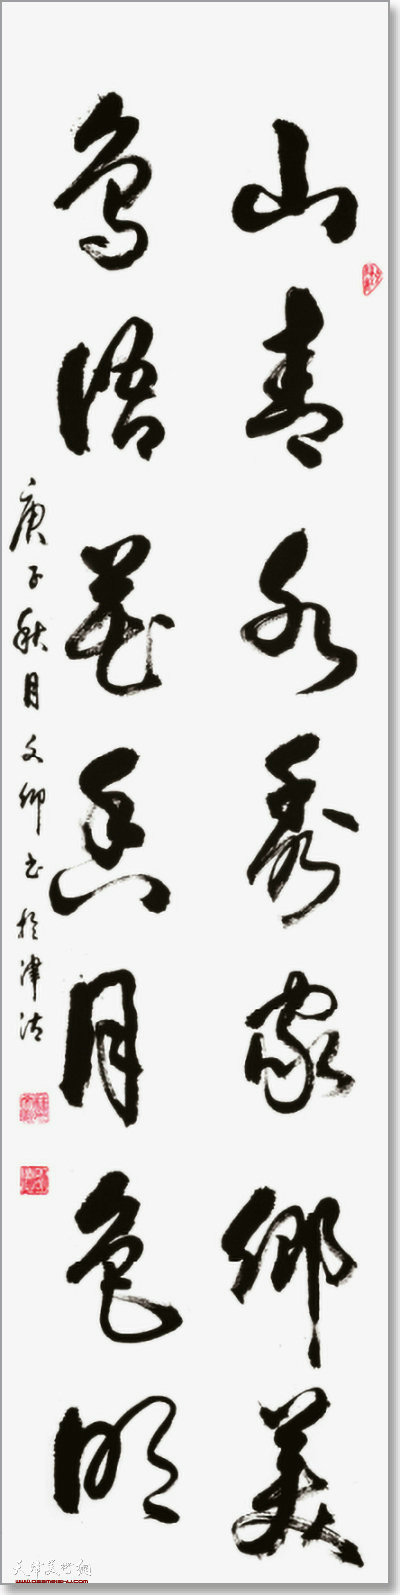 山青水秀家鄉美
鳥語花香月色明
庚子秋月文卿书於津沽
天津美术网